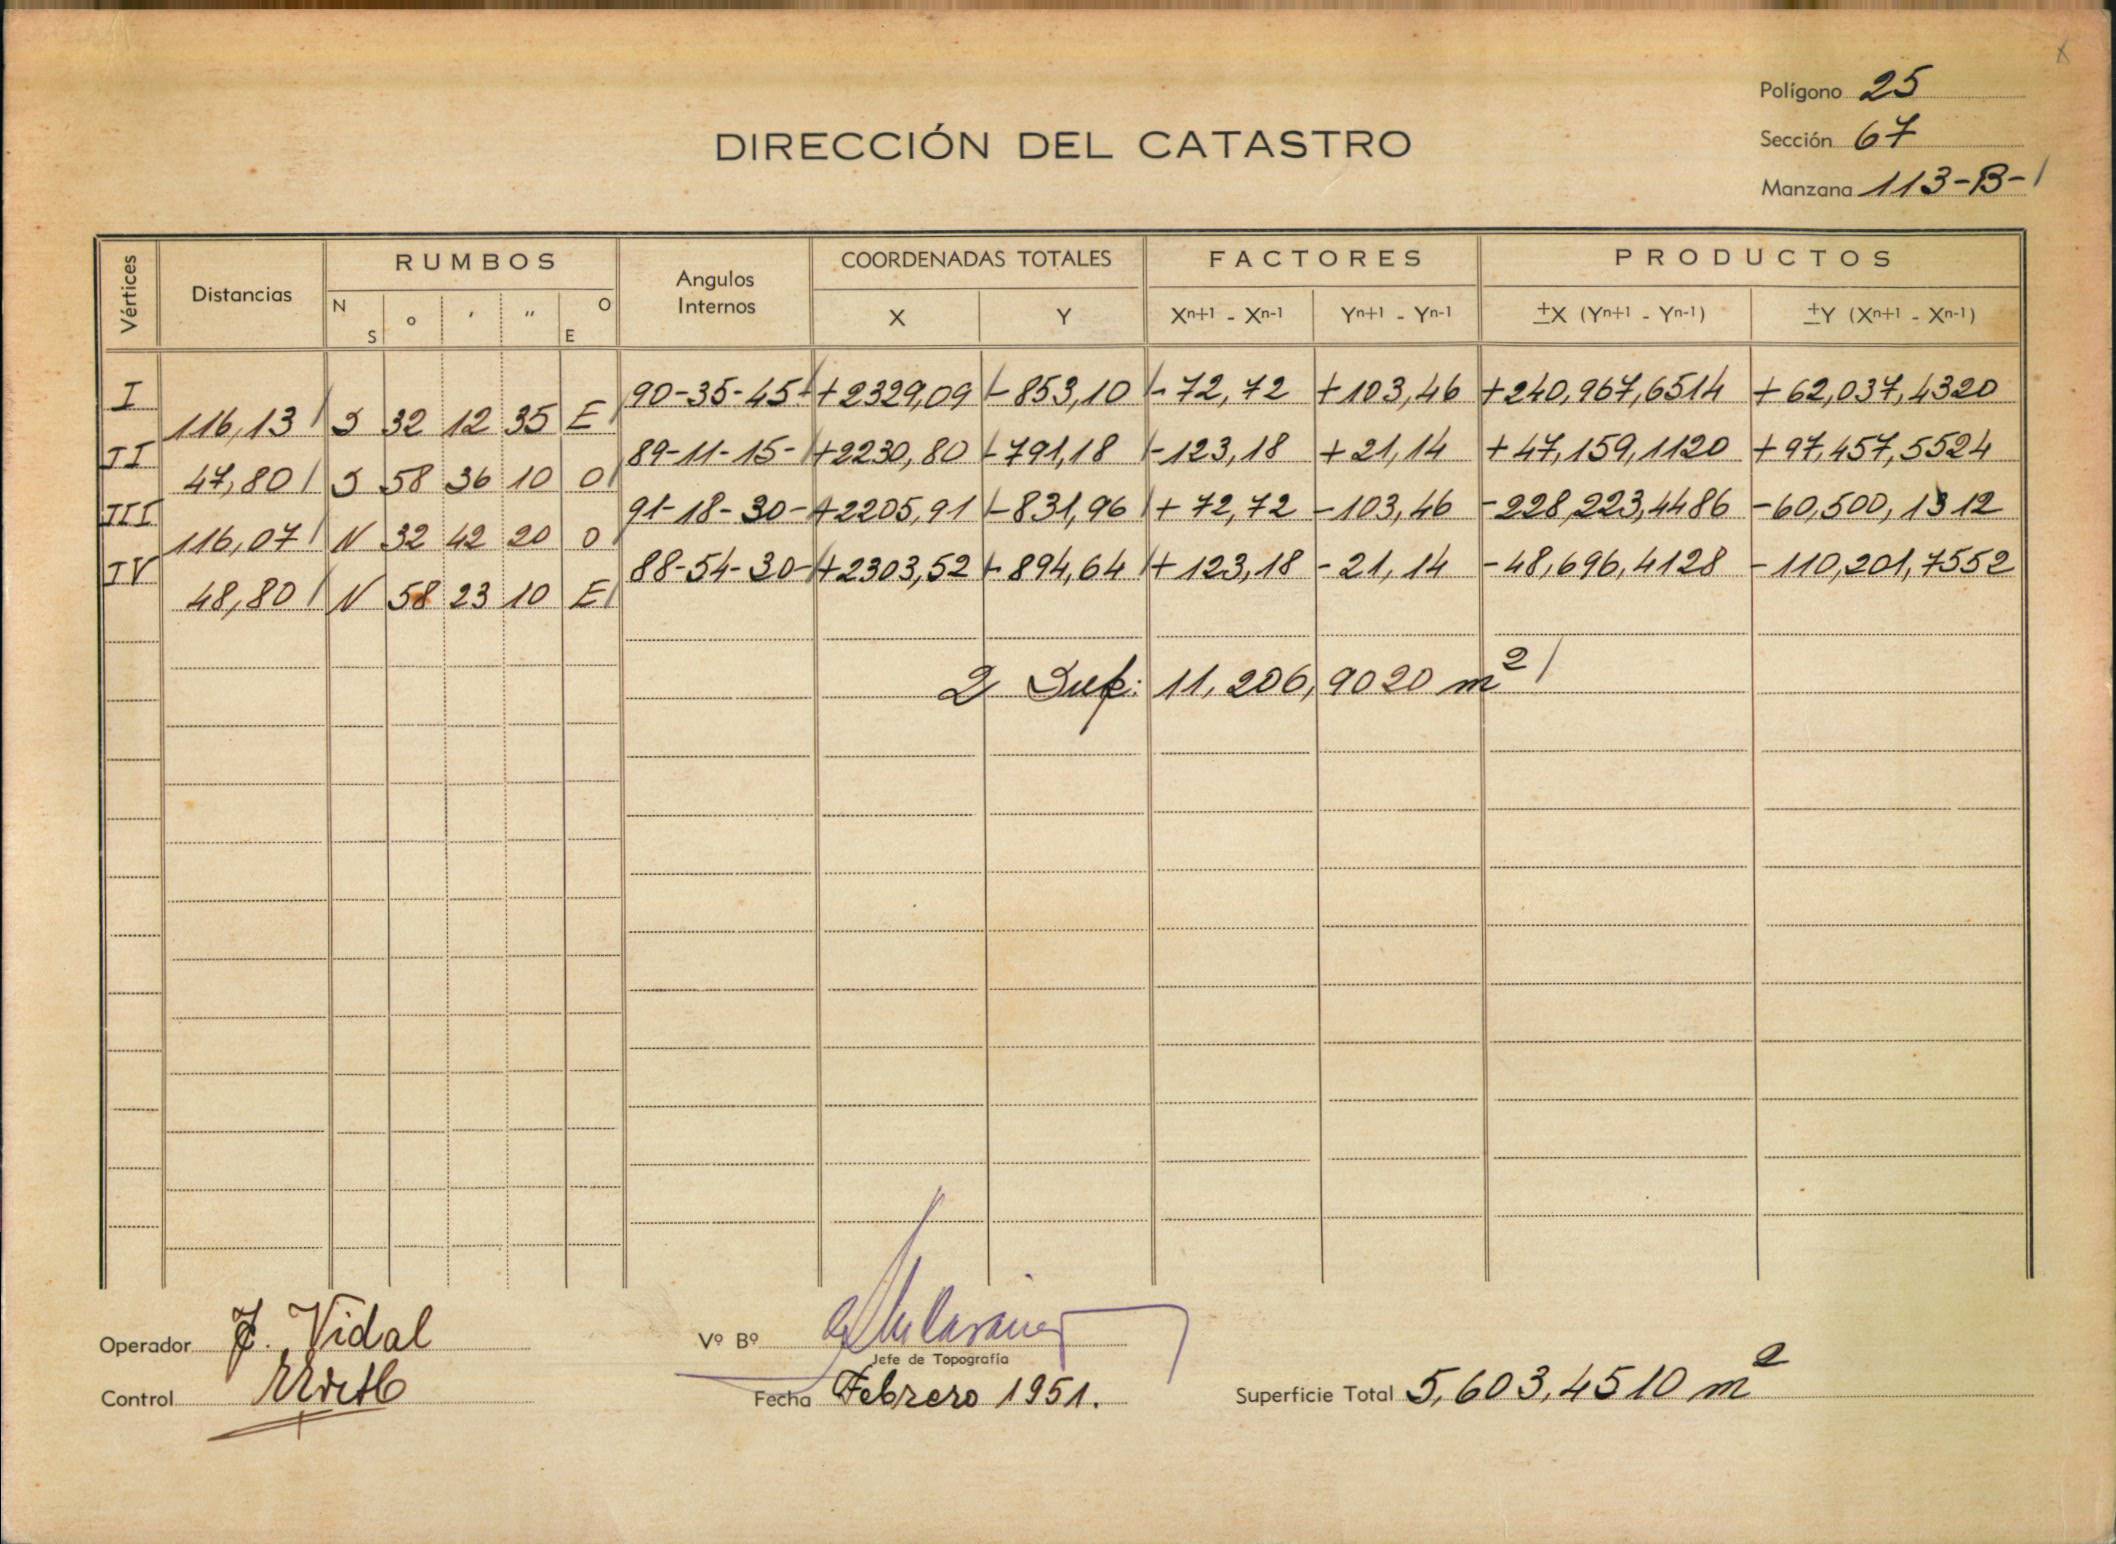 Polígono 25
DIRECCIÓN DEL CATASTRO
Sección 67
Manzana 113-B-1
Vértices Distancias RUMBOS Angulos Internos COORDENADAS TOTALES FACTORES PRODUCTOS
N S o ' '' O E X Y Xn+1 - Xn-1 Yn+1 - Yn-1 ±X (Yn+1 - Yn-1) ±Y (Xn+1 - Xn-1)
I 90-35-45- +2329,09 -853,10 -72,72 +103,46 +240,967,6514 +62,037,4320
116,13 S 32 12 35 E
II 89-11-15- +2230,80 -791,18 -123,18 +21,14 +47,159,1120 +97,457,5524
47,80 S 58 36 10 O
III 91-18-30- +2205,91 -831,96 +72,72 -103,46 -228,223,4486 -60,500,1312
116,07 N 32 42 20 O
IV 88-54-30- +2303,52 - 894,64 +123,18 -21,14 -48,696,4128 -110,201,7552
48,80 N 58 23 10 E
2 Sup: 11,206,9020 m²
Operador J. Vidal Vº Bº
Jefe de Topografía
Control Fecha Febrero 1951. Superficie Total 5,603,4510 m²